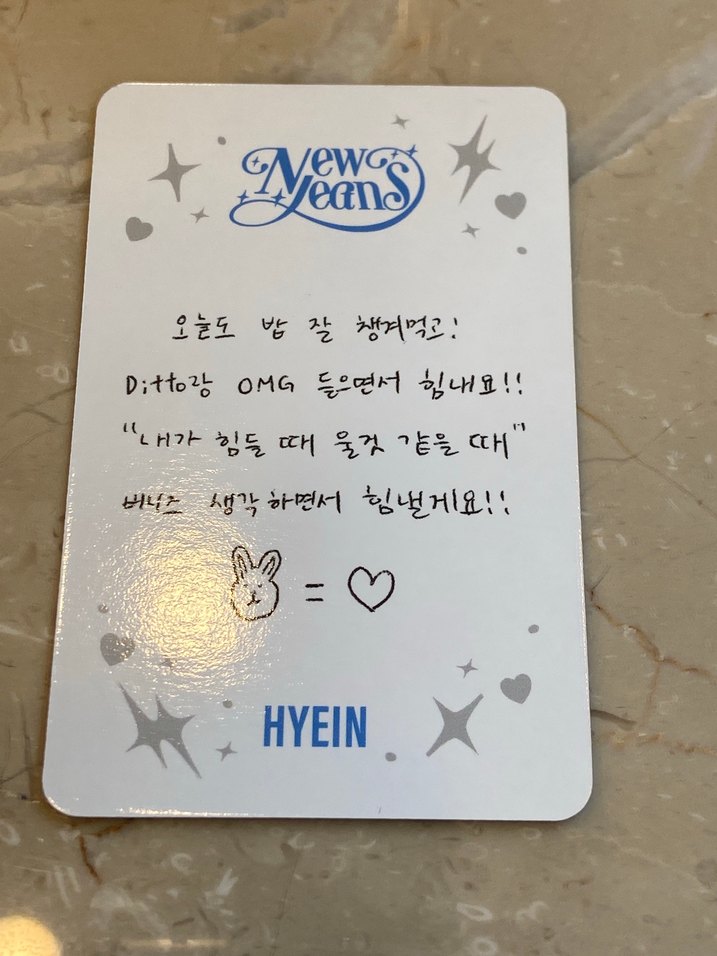 New
Jeans
오늘도 밥 잘 챙겨먹고!
Ditto랑 OMG 들으면서 힘내요!!
"내가 힘들 때 울것 같을 때"
버니즈 생각하면서 힘낼게요!!
=
HYEIN